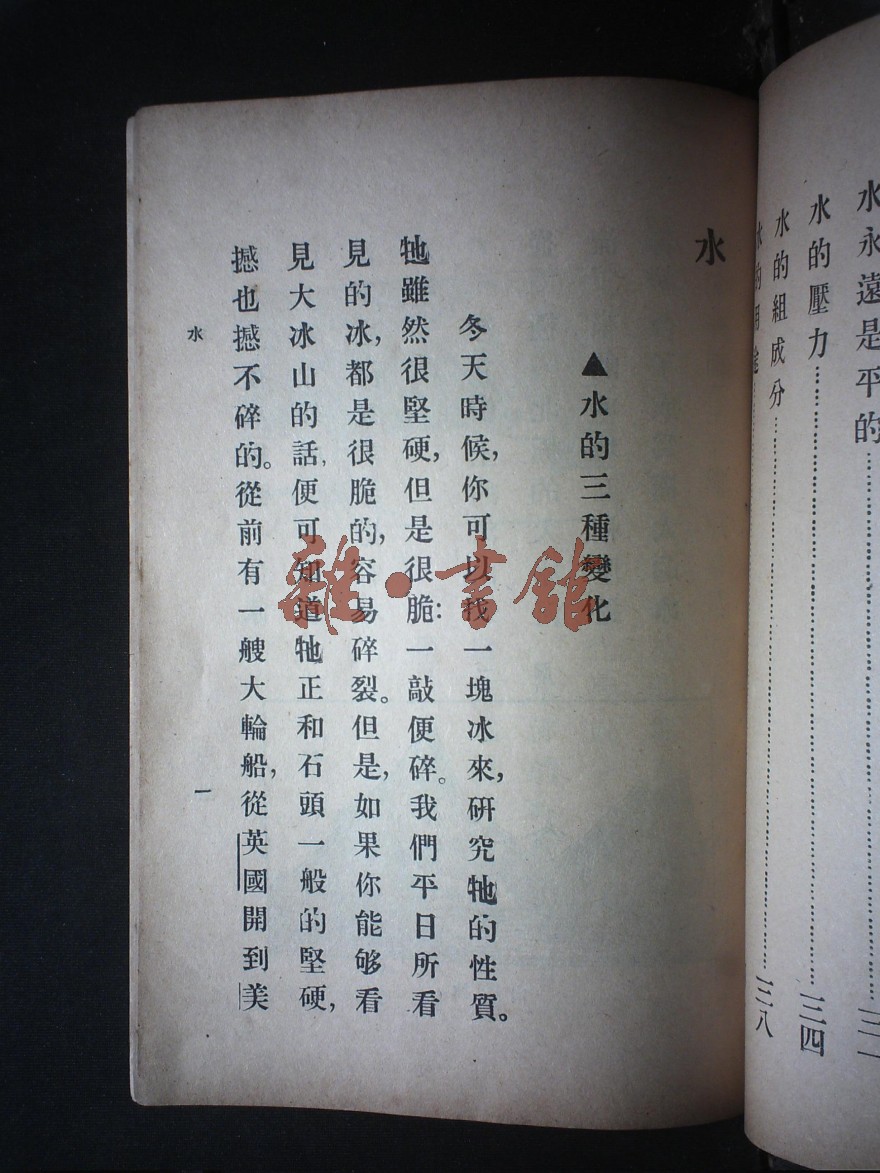 水永遠是平的……………………三一
水的壓力……………………三四
水的組成分……………………三八
水的用途
水
▲水的三種變化
冬天時候，你可以找一塊冰來，硏究牠的性質。
牠雖然很堅硬，但是很脆：一敲便碎。我們平日所看
見的冰，都是很脆的，容易碎裂。但是，如果你能够看
見大冰山的話，便可知道牠正和石頭一般的堅硬，
撼也撼不碎的。從前有一艘大輪船，從英國開到美
水
一
雜·書館